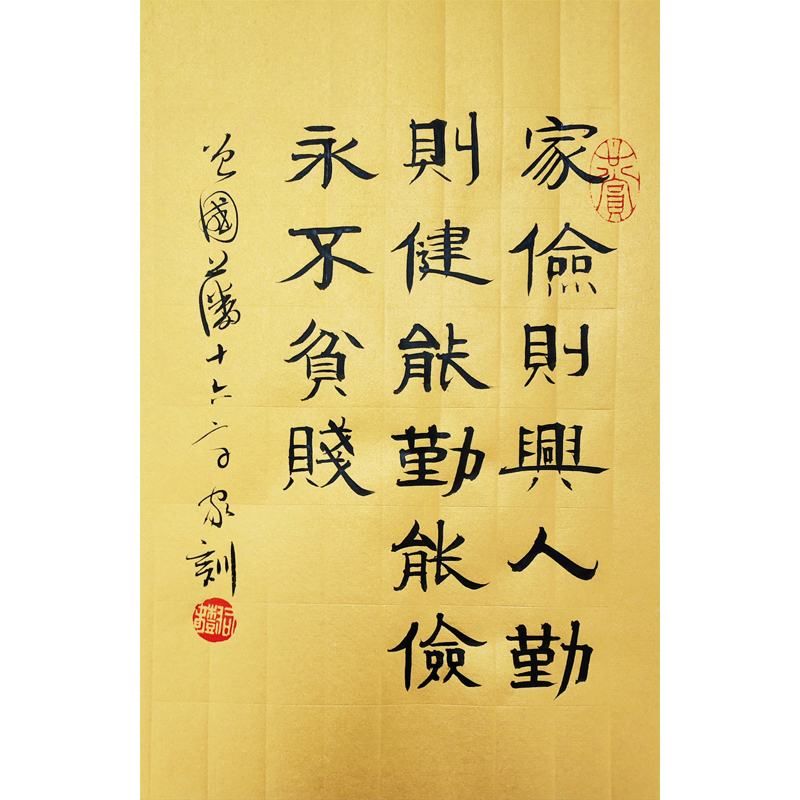 共賞
家儉則興人勤
則健能勤能儉
永不貧賤
曾國藩十六字家訓